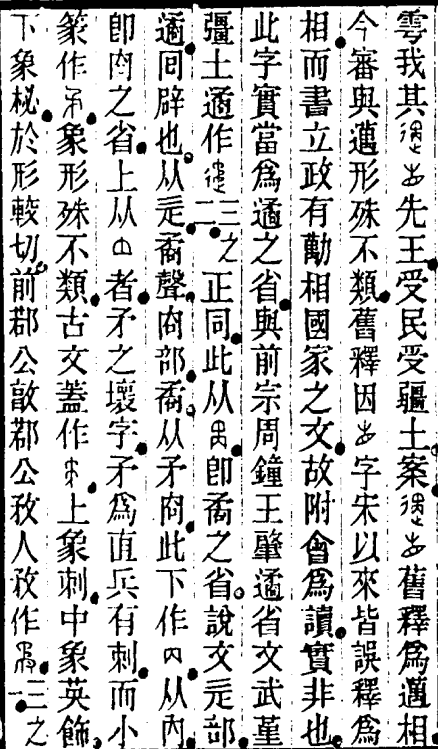 雩我其先王受民受疆土案舊釋爲邁相
今審與邁形殊不類舊釋因字宋以來皆誤釋爲
相而書立政有勱相國家之文故附會爲讀實非也
此字實當爲遹之省與前宗周鐘王肈遹省文武堇
疆土遹作二三之正同此从即矞之省說文辵部
遹回辟也从辵矞聲㕯部矞从矛㕯此下作从內
卽㕯之省上从者矛之壞字矛爲直兵有刺而小
篆作象形殊不類古文蓋作上象刺中象英飾
下象柲於形較切前郡公敄郡公敄人敄作一三之